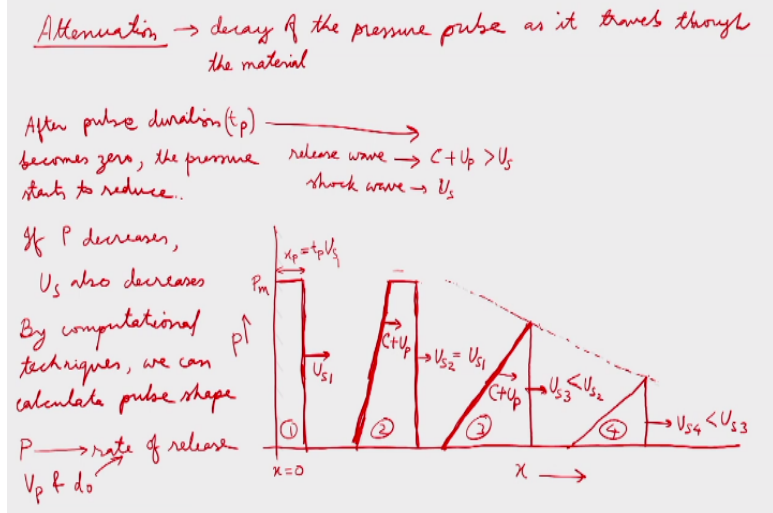 Attenuation → decay of the pressure pulse as it travels through
the material
After pulse duration (tp) →
becomes zero, the pressure
starts to reduce..
release wave → C+Up > Us
shock wave → Us
If P decreases,
Us also decreases
By computational
techniques, we can
calculate pulse shape
P → rate of release
Vp & do
xp = tp Us1
Pm
P↑
Us1
C+Up
Us2 = Us1
C+Up
Us3 < Us2
Us4 < Us3
① ② ③ ④
x=0
x →